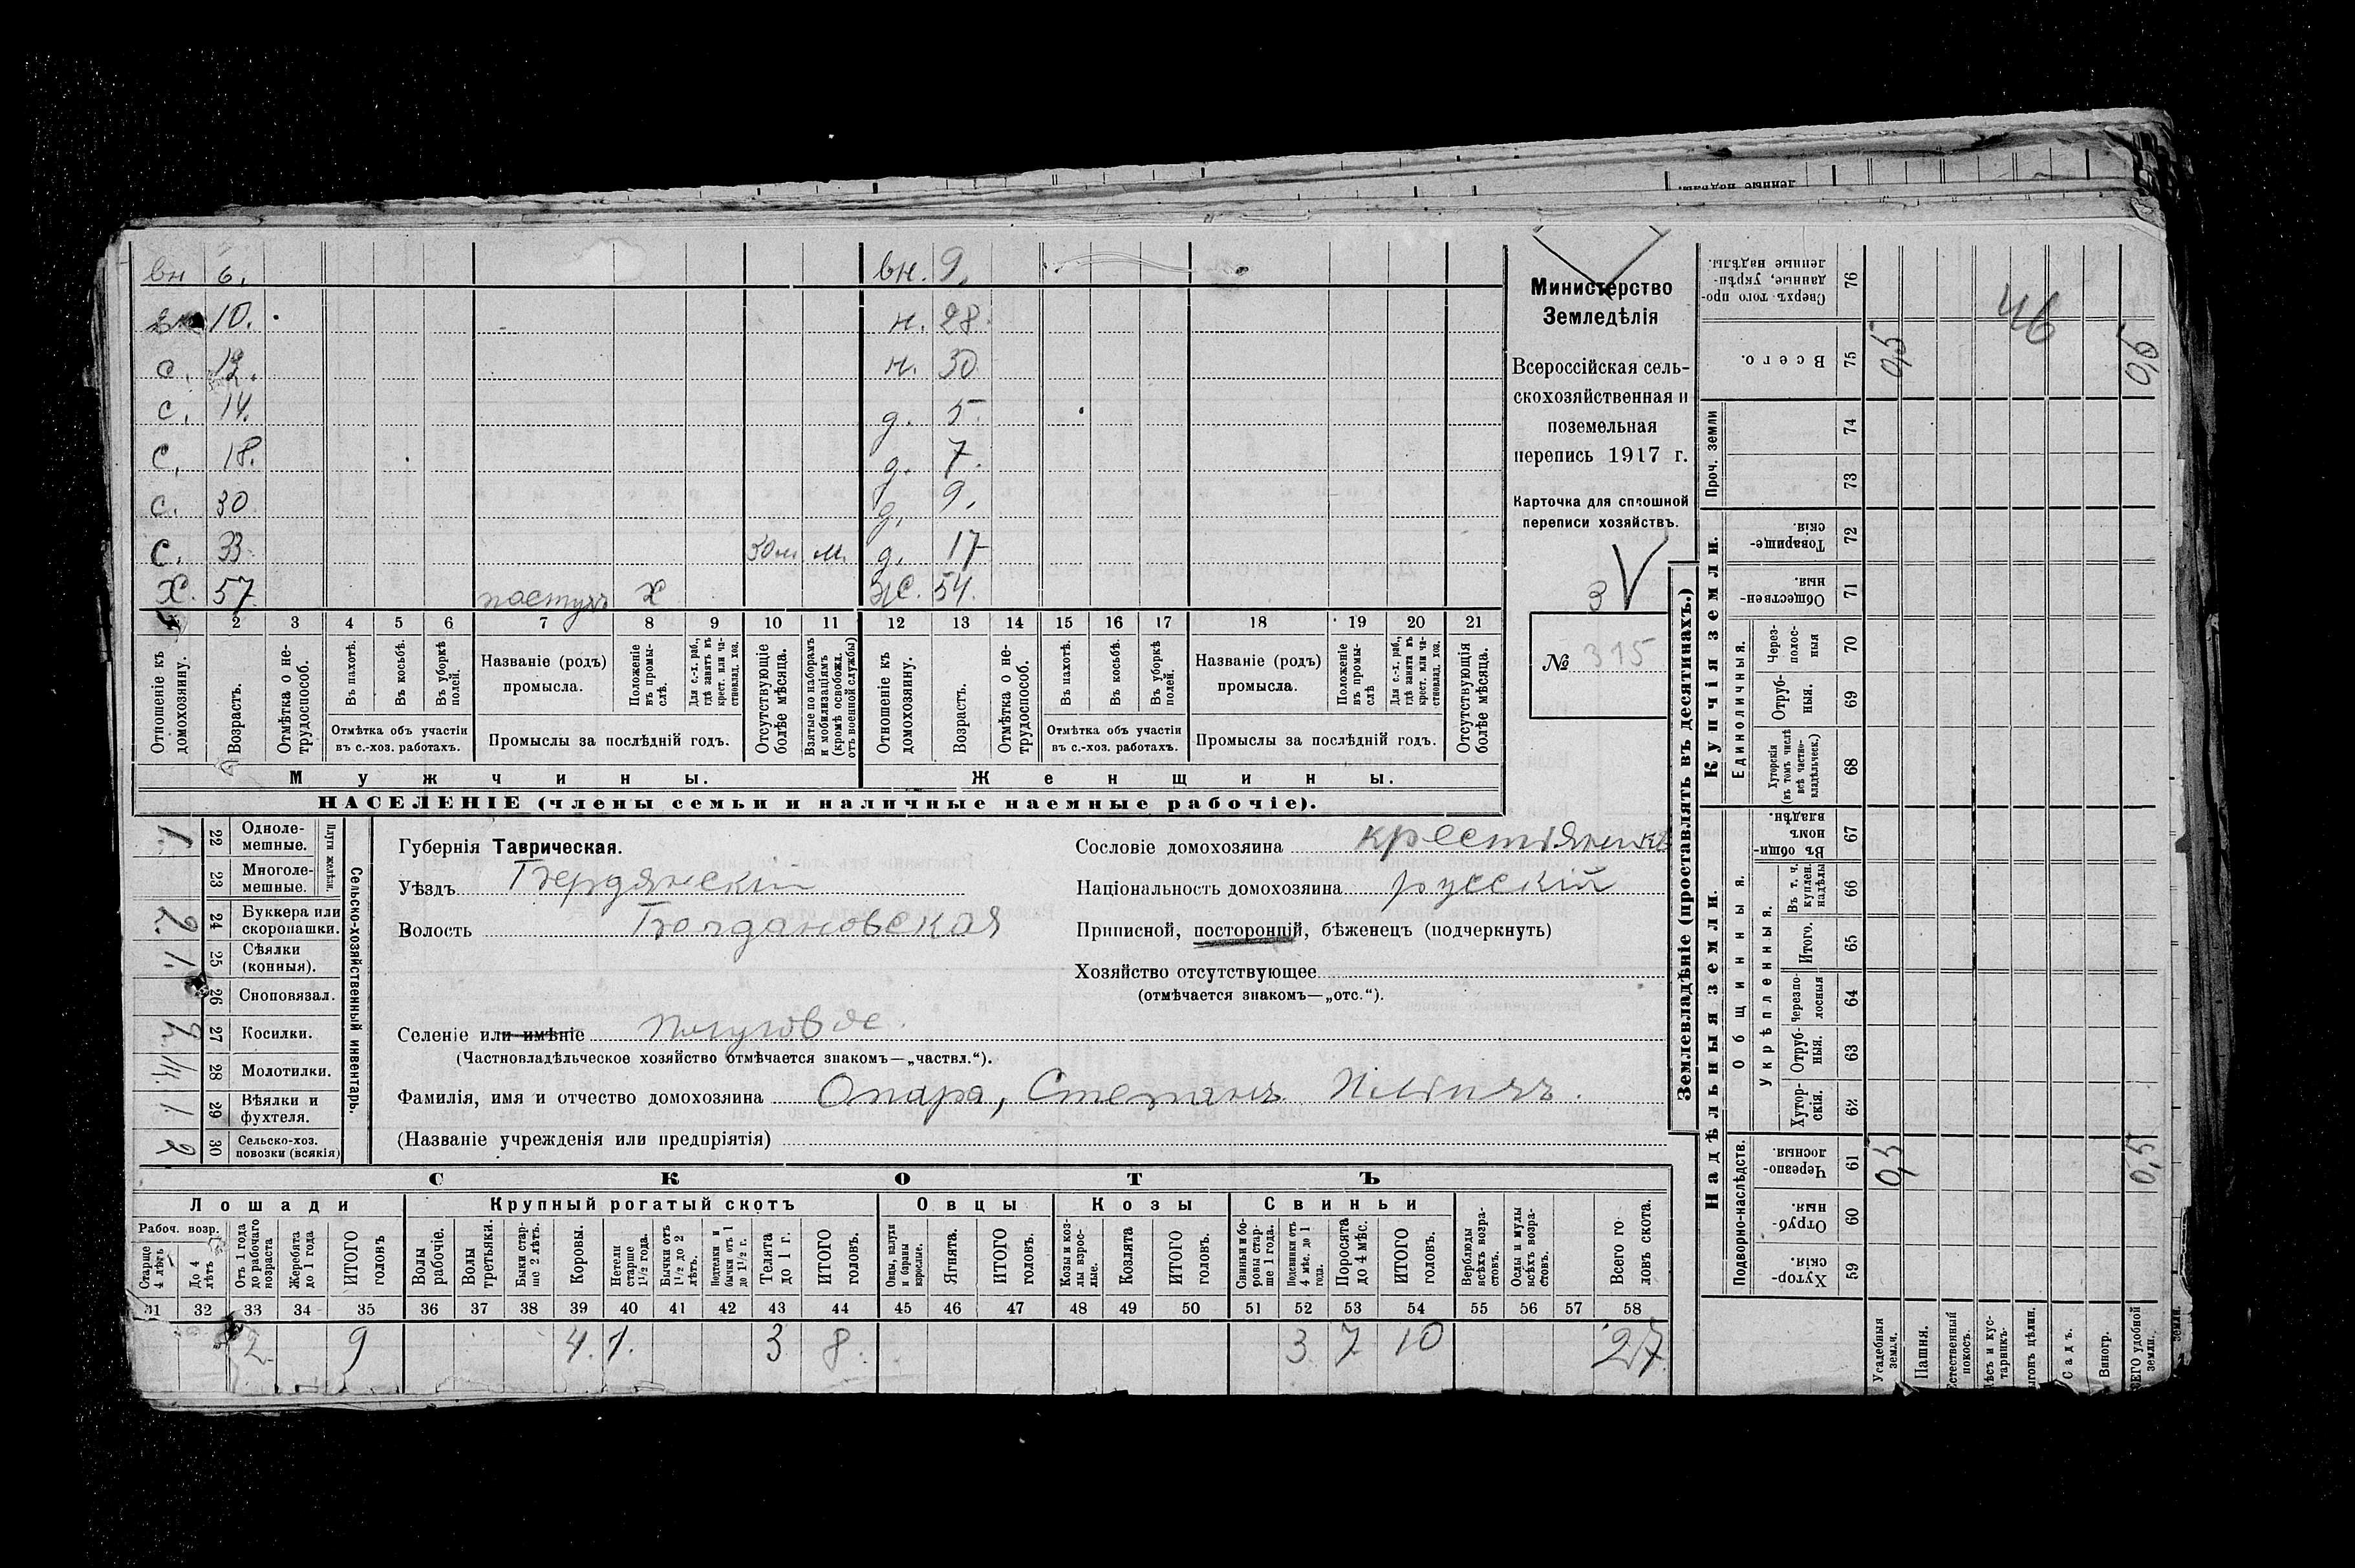 вн 6. вн. 9.
вн 10. н. 28.
с. 12. н. 30
с. 14. д. 5.
с. 18. д. 7.
с. 30 д. 9.
с. 33 м. д. 17
Х. 57 пастухъ х ж. 54.
1 2 3 4 5 6 7 8 9 10 11 12 13 14 15 16 17 18 19 20 21
Отношеніе къ домохозяину.
Возрастъ.
Отмѣтка о не-
трудоспособ.
Въ пахотѣ.
Въ косьбѣ.
Въ уборкѣ полей.
Отмѣтка объ участіи
въ с.-хоз. работахъ.
Названіе (родъ)
промысла.
Положеніе въ промы-
слѣ.
Для с.-х. раб., гдѣ занятъ въ крест. или ча-
стновлад. хоз.
Промыслы за послѣдній годъ.
Отсутствующіе болѣе мѣсяца.
Взятые по наборамъ и мобилизаціямъ (кромѣ освобожд. отъ военной службы)
Отношеніе къ домохозяину.
Возрастъ.
Отмѣтка о не-
трудоспособ.
Въ пахотѣ.
Въ косьбѣ.
Въ уборкѣ полей.
Отмѣтка объ участіи
въ с.-хоз. работахъ.
Названіе (родъ)
промысла.
Положеніе въ промы-
слѣ
Для с.-х. раб., гдѣ занята въ крест. или ча-
стновлад. хоз.
Промыслы за послѣдній годъ.
Отсутствующія болѣе мѣсяца.
Мужчины. Женщины.
НАСЕЛЕНІЕ (члены семьи и наличные наемные рабочіе).
Министерство
Земледѣлія
Всероссійская сель-
скохозяйственная и
поземельная
перепись 1917 г.
Карточка для сплошной
переписи хозяйствъ.
3
№ 315
Сельско-хозяйственный инвентарь.
Плуги желѣзн.
1. 22 Одноле-
мешные.
23 Многоле-
мешные.
2. 24 Буккера или
скоропашки.
1. 25 Сѣялки
(конныя).
26 Сноповязал.
27 Косилки.
28 Молотилки.
1. 29 Вѣялки и
фухтеля.
2 30 Сельско-хоз.
повозки (всякія)
Губернія Таврическая.
Уѣздъ Бердянскій
Волость Богдановская
Сословіе домохозяина крестьянинъ
Національность домохозяина русскій
Приписной, посторонній, бѣженецъ (подчеркнуть)
Хозяйство отсутствующее
(отмѣчается знакомъ—„отс.“).
Селеніе или имѣніе
(Частновладѣльческое хозяйство отмѣчается знакомъ—„частвл.“).
Фамилія, имя и отчество домохозяина Опара, Степанъ
(Названіе учрежденія или предпріятія)
СКОТЪ
Лошади Крупный рогатый скотъ Овцы Козы Свиньи
Рабоч. возр.
Старше 4 лѣтъ
До 4 лѣтъ
Отъ 1 года до рабочаго возраста
Жеребята до 1 года
ИТОГО головъ
Волы рабочіе.
Волы третьяки.
Быки стар-
ше 2 лѣтъ.
Коровы.
Нетели старше 1½ года.
Бычки отъ 1½ до 2 лѣтъ.
Подтелки и бычки отъ 1 до 1½ г.
Телята до 1 г.
ИТОГО головъ.
Овцы, валухи и бараны взрослые.
Ягнята.
ИТОГО головъ.
Козы и коз-
лы взрос-
лые.
Козлята
ИТОГО головъ.
Свиньи и бо-
ровы стар-
ше 1 года.
Подсвинки отъ 4 мѣс. до 1 года.
Поросята до 4 мѣс.
ИТОГО головъ.
Верблюды всѣхъ возра-
стовъ.
Ослы и мулы всѣхъ возра-
стовъ.
Всего го
ловъ скота.
31 32 33 34 35 36 37 38 39 40 41 42 43 44 45 46 47 48 49 50 51 52 53 54 55 56 57 58
2 9 4. 1. 3 8. 3. 7 10 27.
Землевладѣніе (проставлять въ десятинахъ.)
Надѣльныя земли. Купчія земли.
Подворно-наслѣдств. Общинныя. Единоличныя. Проч. земли
Укрѣпленныя.
Сверхъ того про-
данные, укрѣп-
ленные надѣлы. 76
Всего. 75 0,5 46 0,5
74
73
Товарище-
скія. 72
Обществен-
ныя. 71
Через-
полос-
ныя 70
Отруб-
ныя. 69
Хуторскія (въ томъ числѣ всѣ частно-
владѣльческ.) 68
Въ общин-
номъ владѣн. 67
Въ т. ч. куплен. надѣлы 66
Итого. 65
Черезпо-
лосныя 64
Отруб-
ныя. 63
Хутор-
скія. 62
Черезпо-
лосныя. 61 0,5 0,5
Отруб-
ныя. 60
Хутор-
скія. 59
Усадебныя земл.
Пашня.
Естественный покосъ.
Лѣсъ и кус-
тарникъ.
Выгонъ цѣлин.
Садъ.
Виногр.
ВСЕГО удобной земли.